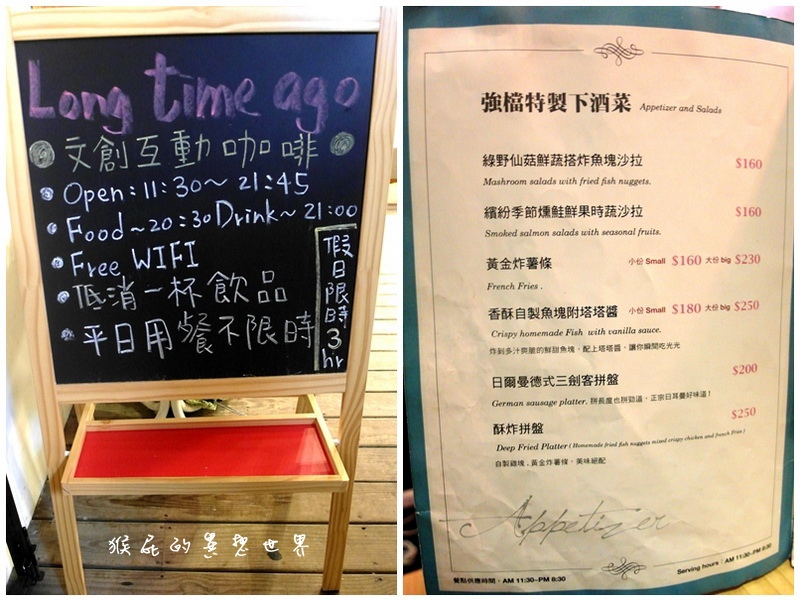 Long time ago
文創互動咖啡
Open:11:30～21:45
Food～20:30 Drink～21:00
Free WIFI
低消一杯飲品
平日用餐不限時
假日限時3hr
猴屁的異想世界
強檔特製下酒菜 Appetizer and Salads
綠野仙菇鮮蔬搭炸魚塊沙拉 $160
Mashroom salads with fried fish nuggets.
繽紛季節燻鮭鮮果時蔬沙拉 $160
Smoked salmon salads with seasonal fruits.
黃金炸薯條 小份 Small $160 大份 big $230
French Fries .
香酥自製魚塊附塔塔醬 小份 Small $180 大份 big $250
Crispy homemade Fish with vanilla sauce.
炸到多汁爽脆的鮮甜魚塊，配上塔塔醬，讓你瞬間吃光光
日爾曼德式三劍客拼盤 $200
German sausage platter. 拼長度也拼勁道，正宗日耳曼好味道！
酥炸拼盤 $250
Deep Fried Platter (Homemade fried fish nuggets mixed crispy chicken and french Fries)
自製雞塊，黃金炸薯條，美味絕配
Appetizer
餐點供應時間，AM 11:30–PM 8:30
Serving hours : AM 11:30–PM 8:30